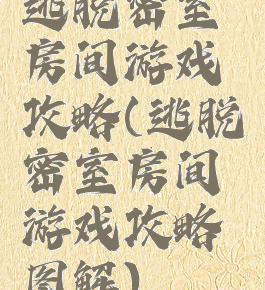 逃脱密室
房间游戏
攻略(逃脱
密室房间
游戏攻略
图解)